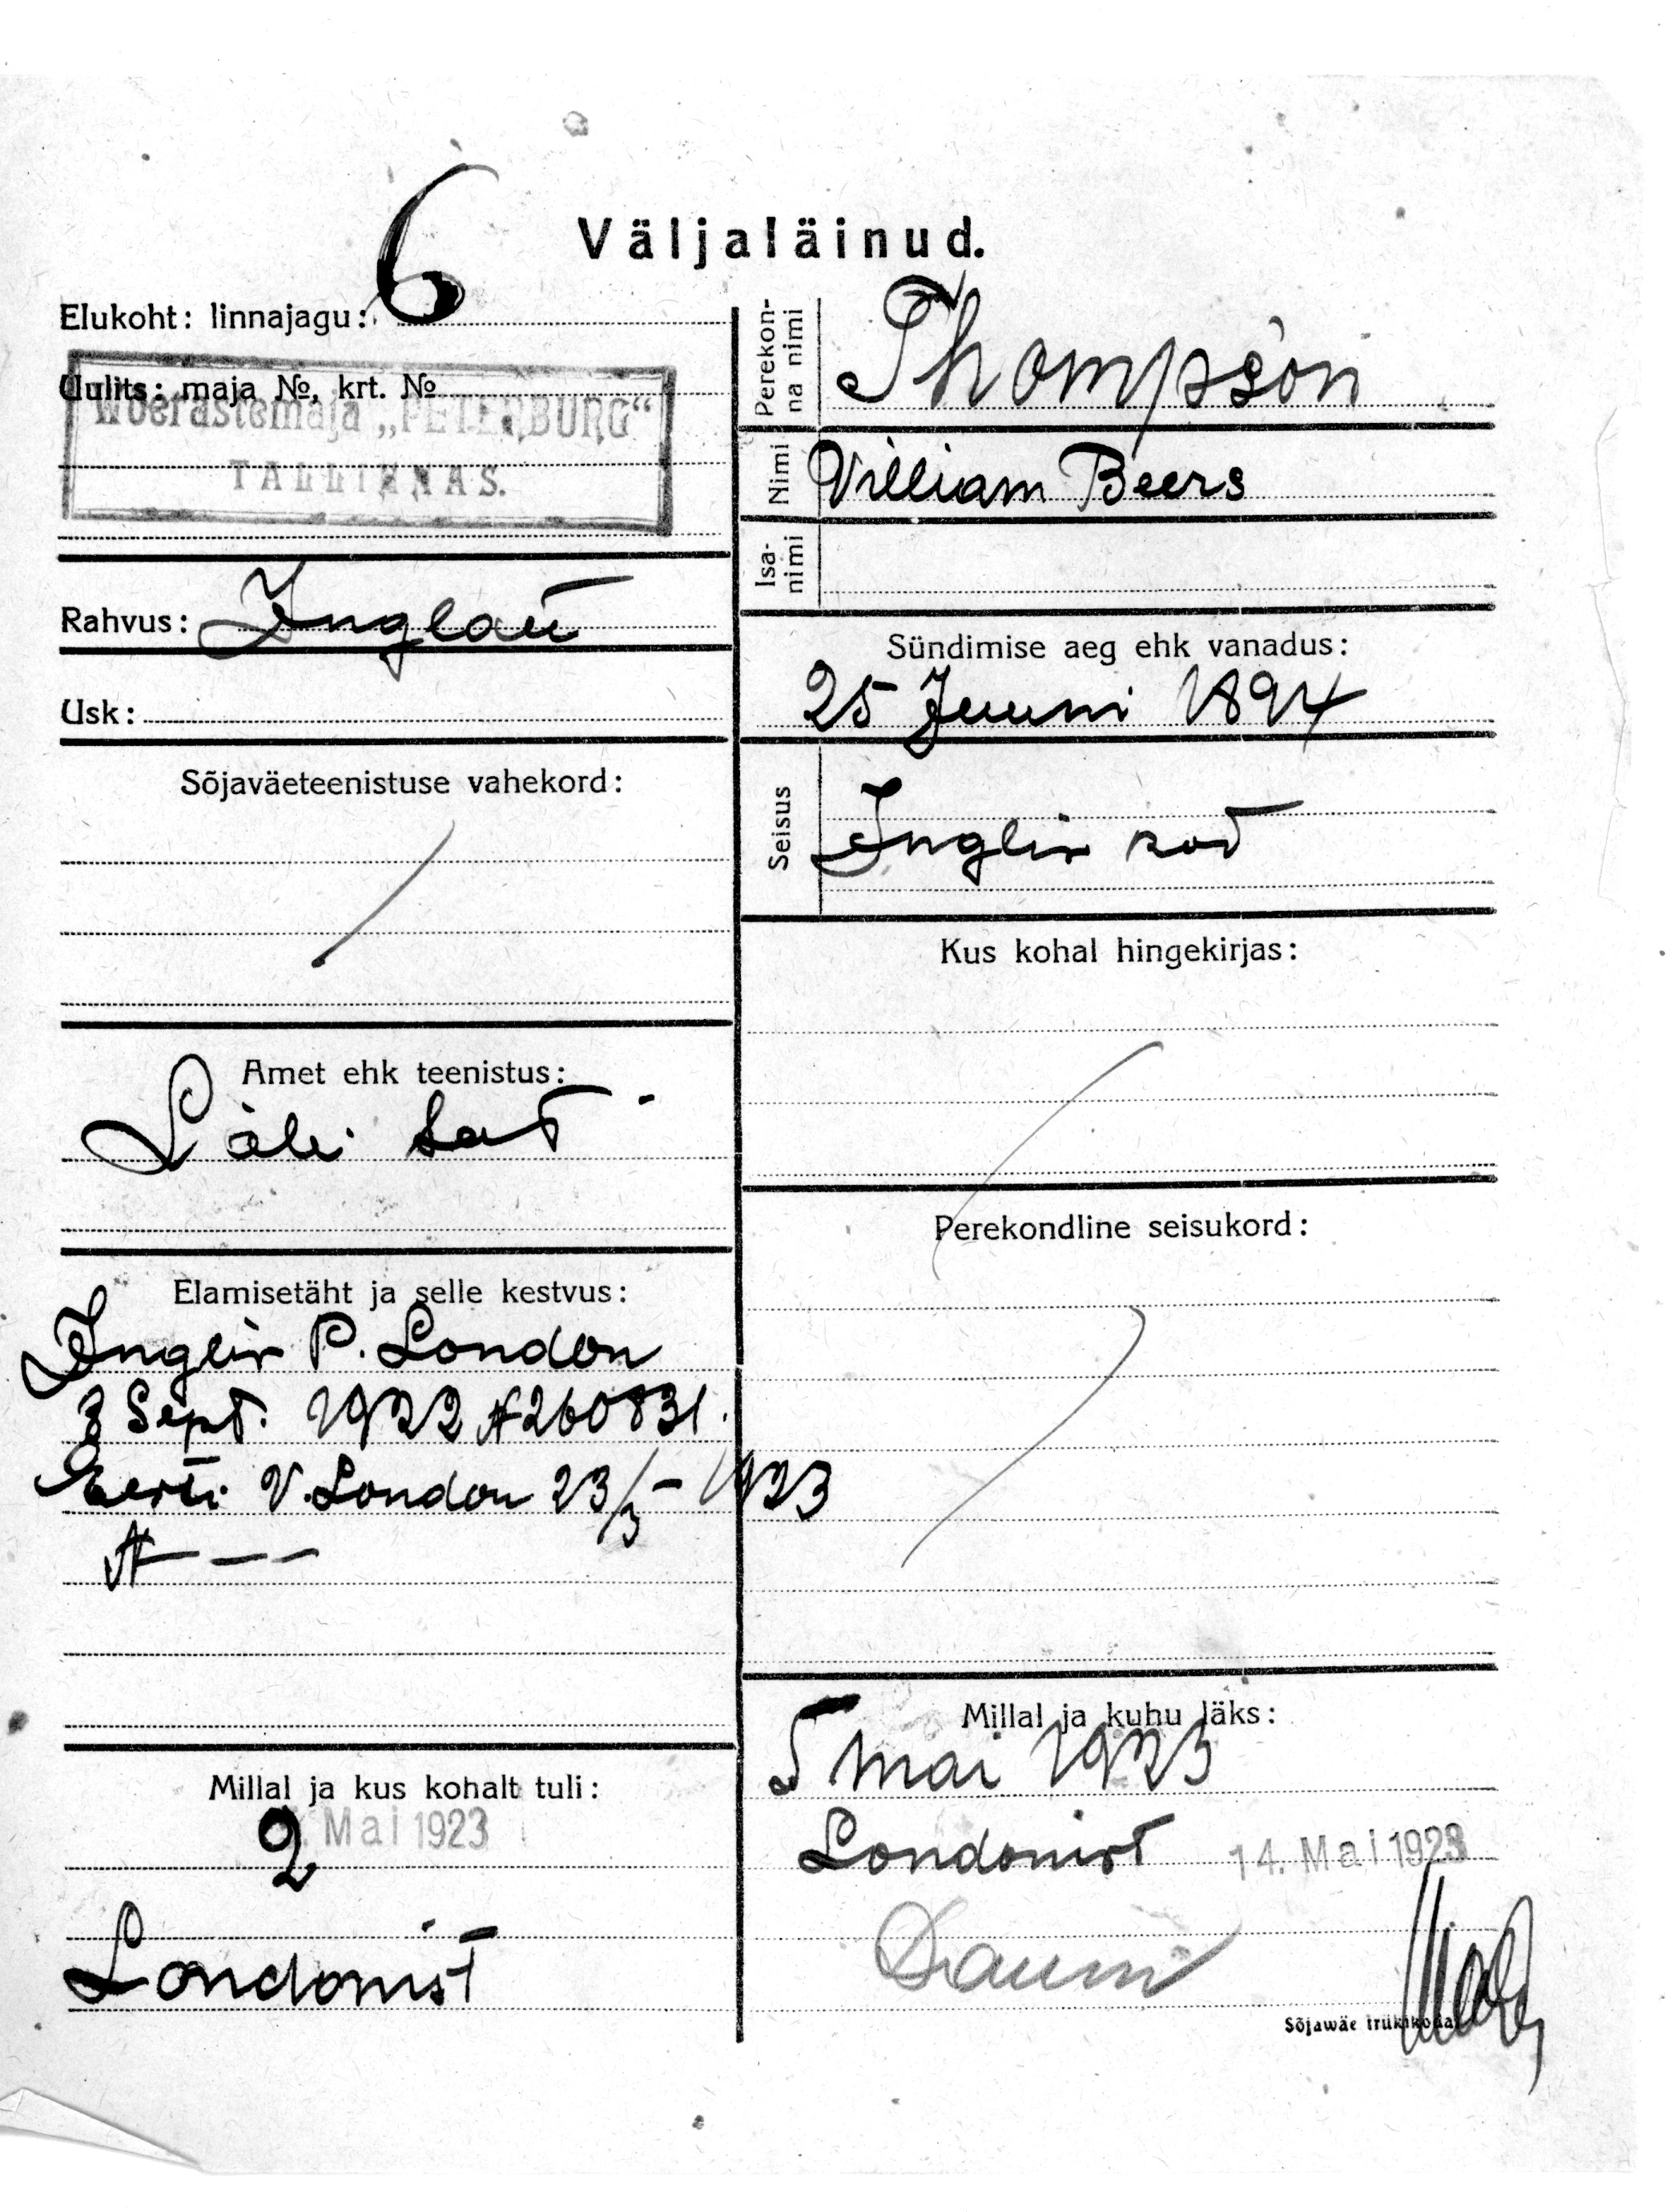 Väljaläinud.
Elukoht: linnajagu: 6
Uulits: maja №, krt. №
Woerastemaja „PETERBURG“
TALLINNAS.
Rahvus:
Usk:
Sõjaväeteenistuse vahekord:
Amet ehk teenistus:
Elamisetäht ja selle kestvus:
P. London
3 Sept. 1922 № 260831.
Eesti V. London 23/3 - 1923
№ — —
Millal ja kus kohalt tuli:
2 Mai 1923
Londonist
Perekon-
na nimi
Thompson
Nimi
William Beers
Isa-
nimi
Sündimise aeg ehk vanadus:
25 Juuni 1894
Seisus
Inglis
Kus kohal hingekirjas:
Perekondline seisukord:
Millal ja kuhu läks:
5 Mai 1923
Londonist 14. Mai 1923
Sõjawäe trükikoda